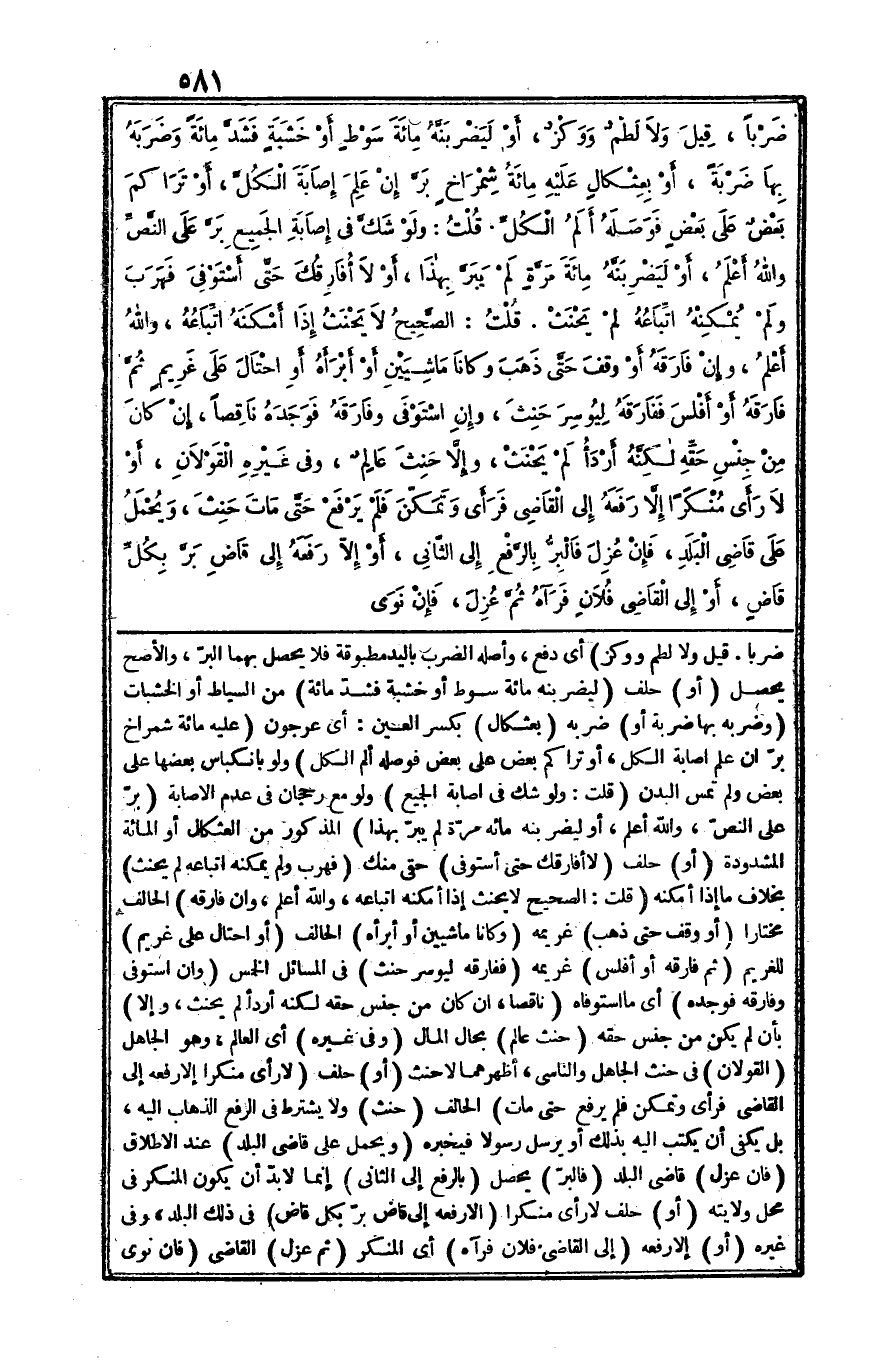 ٥٨١
ضَرْباً ، قِيلَ وَلاَ لَطْمٌ وَوَكْزٌ ، أَوْ لَيَضْرِبَنَّهُ مِائَةَ سَوْطٍ أَوْ خَشَبَةٍ فَشَدَّ مِائَةً وَضَرَبَهُ
بِهَا ضَرْبَةً ، أَوْ بِعِثْكَالٍ عَلَيْهِ مِائَةُ شِمْرَاخٍ بَرَّ إِنْ عَلِمَ إِصَابَةَ الْكُلِّ ، أَوْ تَرَاكُمَ
بَعْضٍ عَلَى بَعْضٍ فَوَصَلَهُ أَلَمُ الْكُلِّ . قُلْتُ : ولَوْ شَكَّ فى إِصَابَةِ الجَمِيعِ بَرَّ عَلَى النَّصِّ
واللهُ أَعْلَمُ ، أَوْ لَيَضْرِبَنَّهُ مِائَةَ مَرَّةٍ لَمْ يَبَرَّ بِهٰذَا ، أَوْ لاَ أُفَارِقُكَ حَتَّى أَسْتَوْفِىَ فَهَرَبَ
ولَمْ يُمْكِنْهُ اتِّبَاعُهُ لَمْ يَحْنَثْ . قُلْتُ : الصَّحِيحُ لاَ يَحْنَثُ إِذَا أَمْكَنَهُ اتِّبَاعُهُ ، واللهُ
أَعْلَمُ ، وإِنْ فَارَقَهُ أَوْ وقَفَ حَتَّى ذَهَبَ وكانَا مَاشِيَيْنِ أَوْ أَبْرَأَهُ أَوِ احْتَالَ عَلَى غَرِيمٍ ثُمَّ
فَارَقَهُ أَوْ أَفْلَسَ فَفَارَقَهُ لِيُوسِرَ حَنِثَ ، وإِنِ اسْتَوْفَى وفَارَقَهُ فَوَجَدَهُ نَاقِصاً ، إِنْ كانَ
مِنْ جِنْسِ حَقِّهِ لٰكِنَّهُ أَرْدَأُ لَمْ يَحْنَثْ ، وإِلَّا حَنِثَ عَالِمٌ ، وفى غَيْرِهِ الْقَوْلاَنِ ، أَوْ
لاَ رَأَى مُنْكَرًا إِلَّا رَفَعَهُ إِلى الْقَاضِى فَرَأَى وَتَمَكَّنَ فَلَمْ يَرْفَعْ حَتَّى مَاتَ حَنِثَ ، وَيُحْمَلُ
عَلَى قَاضِى الْبَلَدِ ، فَإِنْ عُزِلَ فَالْبِرُّ بِالرَّفْعِ إِلى الثَّانِى ، أَوْ إِلاَّ رَفَعَهُ إِلى قاضٍ بَرَّ بِكُلِّ
قاضٍ ، أَوْ إِلى الْقَاضِى فُلاَنٍ فَرَآهُ ثُمَّ عُزِلَ ، فَإِنْ نَوَى
ضربا . قيل ولا لطم ووكز ) أى دفع ، وأصله الضرب باليد مطبوقة فلا يحصل بهما البرّ ، والأصح
يحصل ( أو ) حلف ( ليضربنه مائة سوط أو خشبة فشدّ مائة ) من السياط أو الخشبات
( وضربه بها ضربة أو ) ضربه ( بعثكال ) بكسر العين : أى عرجون ( عليه مائة شمراخ
برّ ان علم اصابة الكل ، أو تراكم بعض على بعض فوصله ألم الكل ) ولو بانكباس بعضها على
بعض ولم تمس البدن ( قلت : ولو شك فى اصابة الجميع ) ولو مع رجحان فى عدم الاصابة ( برّ
على النصّ ، والله أعلم ، أو ليضربنه مائه مرّة لم يبرّ بهذا ) المذكور من العثكال أو المائة
المشدودة ( أو ) حلف ( لا أفارقك حتى أستوفى ) حقى منك ( فهرب ولم يمكنه اتباعه لم يحنث )
بخلاف ما إذا أمكنه ( قلت : الصحيح لا يحنث إذا أمكنه اتباعه ، والله أعلم ، وان فارقه ) الحالف
مختارا ( أو وقف حتى ذهب ) غريمه ( وكانا ماشيين أو أبرأه ) الحالف ( أو احتال على غريم )
للغريم ( ثم فارقه أو أفلس ) غريمه ( ففارقه ليوسر حنث ) فى المسائل الخمس ( وان استوفى
وفارقه فوجده ) أى ما استوفاه ( ناقصا ، ان كان من جنس حقه لكنه أردأ لم يحنث ، و إلا )
بأن لم يكن من جنس حقه ( حنث عالم ) بحال المال ( وفى غيره ) أى العالم ، وهو الجاهل
( القولان ) فى حنث الجاهل والناسى ، أظهرهما لا حنث ( أو ) حلف ( لا رأى منكرا إلا رفعه إلى
القاضى فرأى وتمكن فلم يرفع حتى مات ) الحالف ( حنث ) ولا يشترط فى الرفع الذهاب اليه ،
بل يكفى أن يكتب اليه بذلك أو يرسل رسولا فيخبره ( ويحمل على قاضى البلد ) عند الاطلاق
( فان عزل ) قاضى البلد ( فالبرّ ) يحصل ( بالرفع إلى الثانى ) إنما لابدّ أن يكون المنكر فى
محل ولايته ( أو ) حلف لا رأى منكرا ( الا رفعه إلى قاض برّ بكل قاض ) فى ذلك البلد ، وفى
غيره ( أو ) إلا رفعه ( إلى القاضى فلان فرآه ) أى المنكر ( ثم عزل ) القاضى ( فان نوى